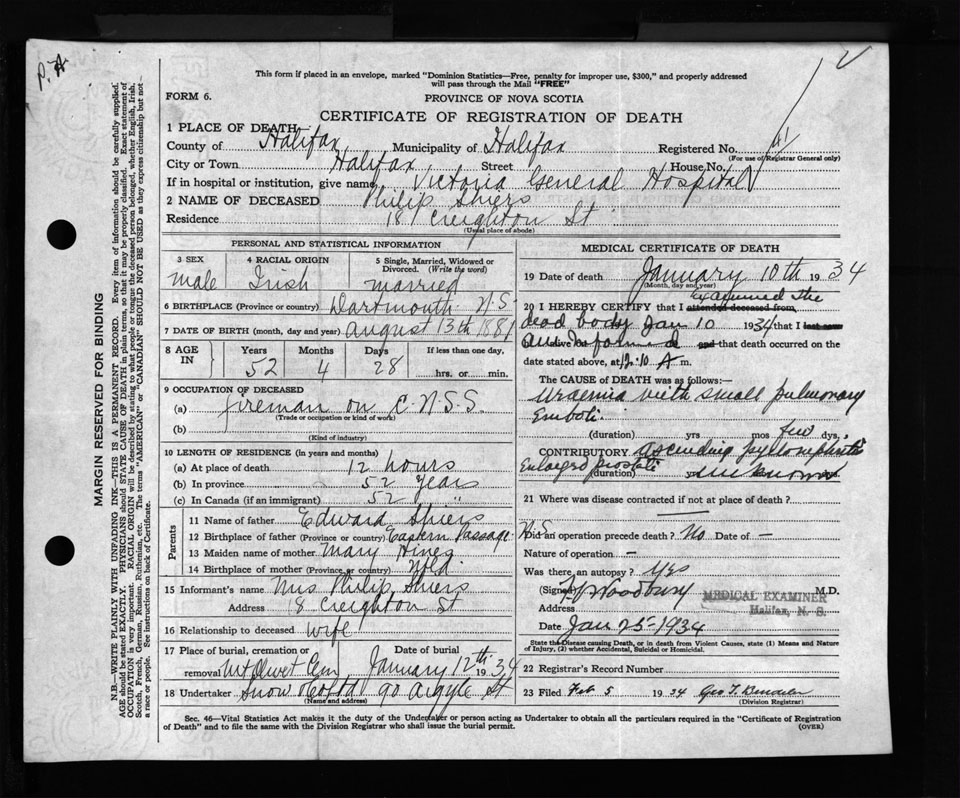 P.A
This form if placed in an envelope, marked "Dominion Statistics—Free, penalty for improper use, $300," and properly addressed
will pass through the Mail "FREE"
FORM 6.
PROVINCE OF NOVA SCOTIA
CERTIFICATE OF REGISTRATION OF DEATH
1 PLACE OF DEATH
County of Halifax Municipality of Halifax Registered No. 41
(For use of Registrar General only)
City or Town Halifax Street House No.
If in hospital or institution, give name Victoria General Hospital
2 NAME OF DECEASED Philip Shiers
Residence 18 Creighton St
(Usual place of abode)
PERSONAL AND STATISTICAL INFORMATION
3 SEX 4 RACIAL ORIGIN 5 Single, Married, Widowed or Divorced. (Write the word)
male Irish married
6 BIRTHPLACE (Province or country) Dartmouth N.S.
7 DATE OF BIRTH (month, day and year) august 13th 1881
8 AGE IN Years Months Days If less than one day,
52 4 28 hrs. or min.
9 OCCUPATION OF DECEASED
(a) fireman on C.N.S.S.
(Trade or occupation or kind of work)
(b)
(Kind of industry)
10 LENGTH OF RESIDENCE (in years and months)
(a) At place of death 12 hours
(b) In province 52 Years
(c) In Canada (if an immigrant) 52 "
Parents
11 Name of father Edward Shiers
12 Birthplace of father (Province or country) Eastern Passage N.S.
13 Maiden name of mother Mary Hines
14 Birthplace of mother (Province or country) Nfld.
15 Informant's name Mrs Philip Shiers
Address 18 Creighton St
16 Relationship to deceased wife
17 Place of burial, cremation or removal Mt Olivet Cem Date of burial January 12th 1934
18 Undertaker Snow & Co Ltd 90 Argyle St
(Name and address)
MEDICAL CERTIFICATE OF DEATH
19 Date of death January 10th 1934
(Month, day and year)
20 I HEREBY CERTIFY that I attended deceased from, examined the
dead body Jan 10 1934 that I last saw
alive on and that death occurred on the
date stated above, at 12.10 A m.
The CAUSE OF DEATH was as follows:—
Uraemia with small pulmonary
Emboli.
(duration) yrs mos few dys.
CONTRIBUTORY ascending pyelonephritis
Enlarged prostate (duration) unknown
21 Where was disease contracted if not at place of death? —
Did an operation precede death? No Date of —
Nature of operation —
Was there an autopsy? Yes
(Signed) Woodbury M.D.
MEDICAL EXAMINER
Halifax, N. S.
Address
Date Jan 25-1934
State the Disease causing Death, or in death from Violent Causes, state (1) Means and Nature
of Injury, (2) whether Accidental, Suicidal or Homicidal.
22 Registrar's Record Number
23 Filed Feb 5 1934 Geo T.
(Division Registrar)
Sec. 46—Vital Statistics Act makes it the duty of the Undertaker or person acting as Undertaker to obtain all the particulars required in the "Certificate of Registration
of Death" and to file the same with the Division Registrar who shall issue the burial permit.
(OVER)
MARGIN RESERVED FOR BINDING
N.B.—WRITE PLAINLY WITH UNFADING INK—THIS IS A PERMANENT RECORD. Every item of information should be carefully supplied.
AGE should be stated EXACTLY. PHYSICIANS should STATE CAUSE OF DEATH in plain terms, so that it may be properly classified. Exact statement of
OCCUPATION is very important. RACIAL ORIGIN will be described by stating to what people or tongue the deceased person belonged, whether English, Irish,
Scotch, French, German, Russian, Ruthenian, etc. The terms "AMERICAN" or "CANADIAN" SHOULD NOT BE USED as they express citizenship but not
a race or people. See instructions on back of Certificate.